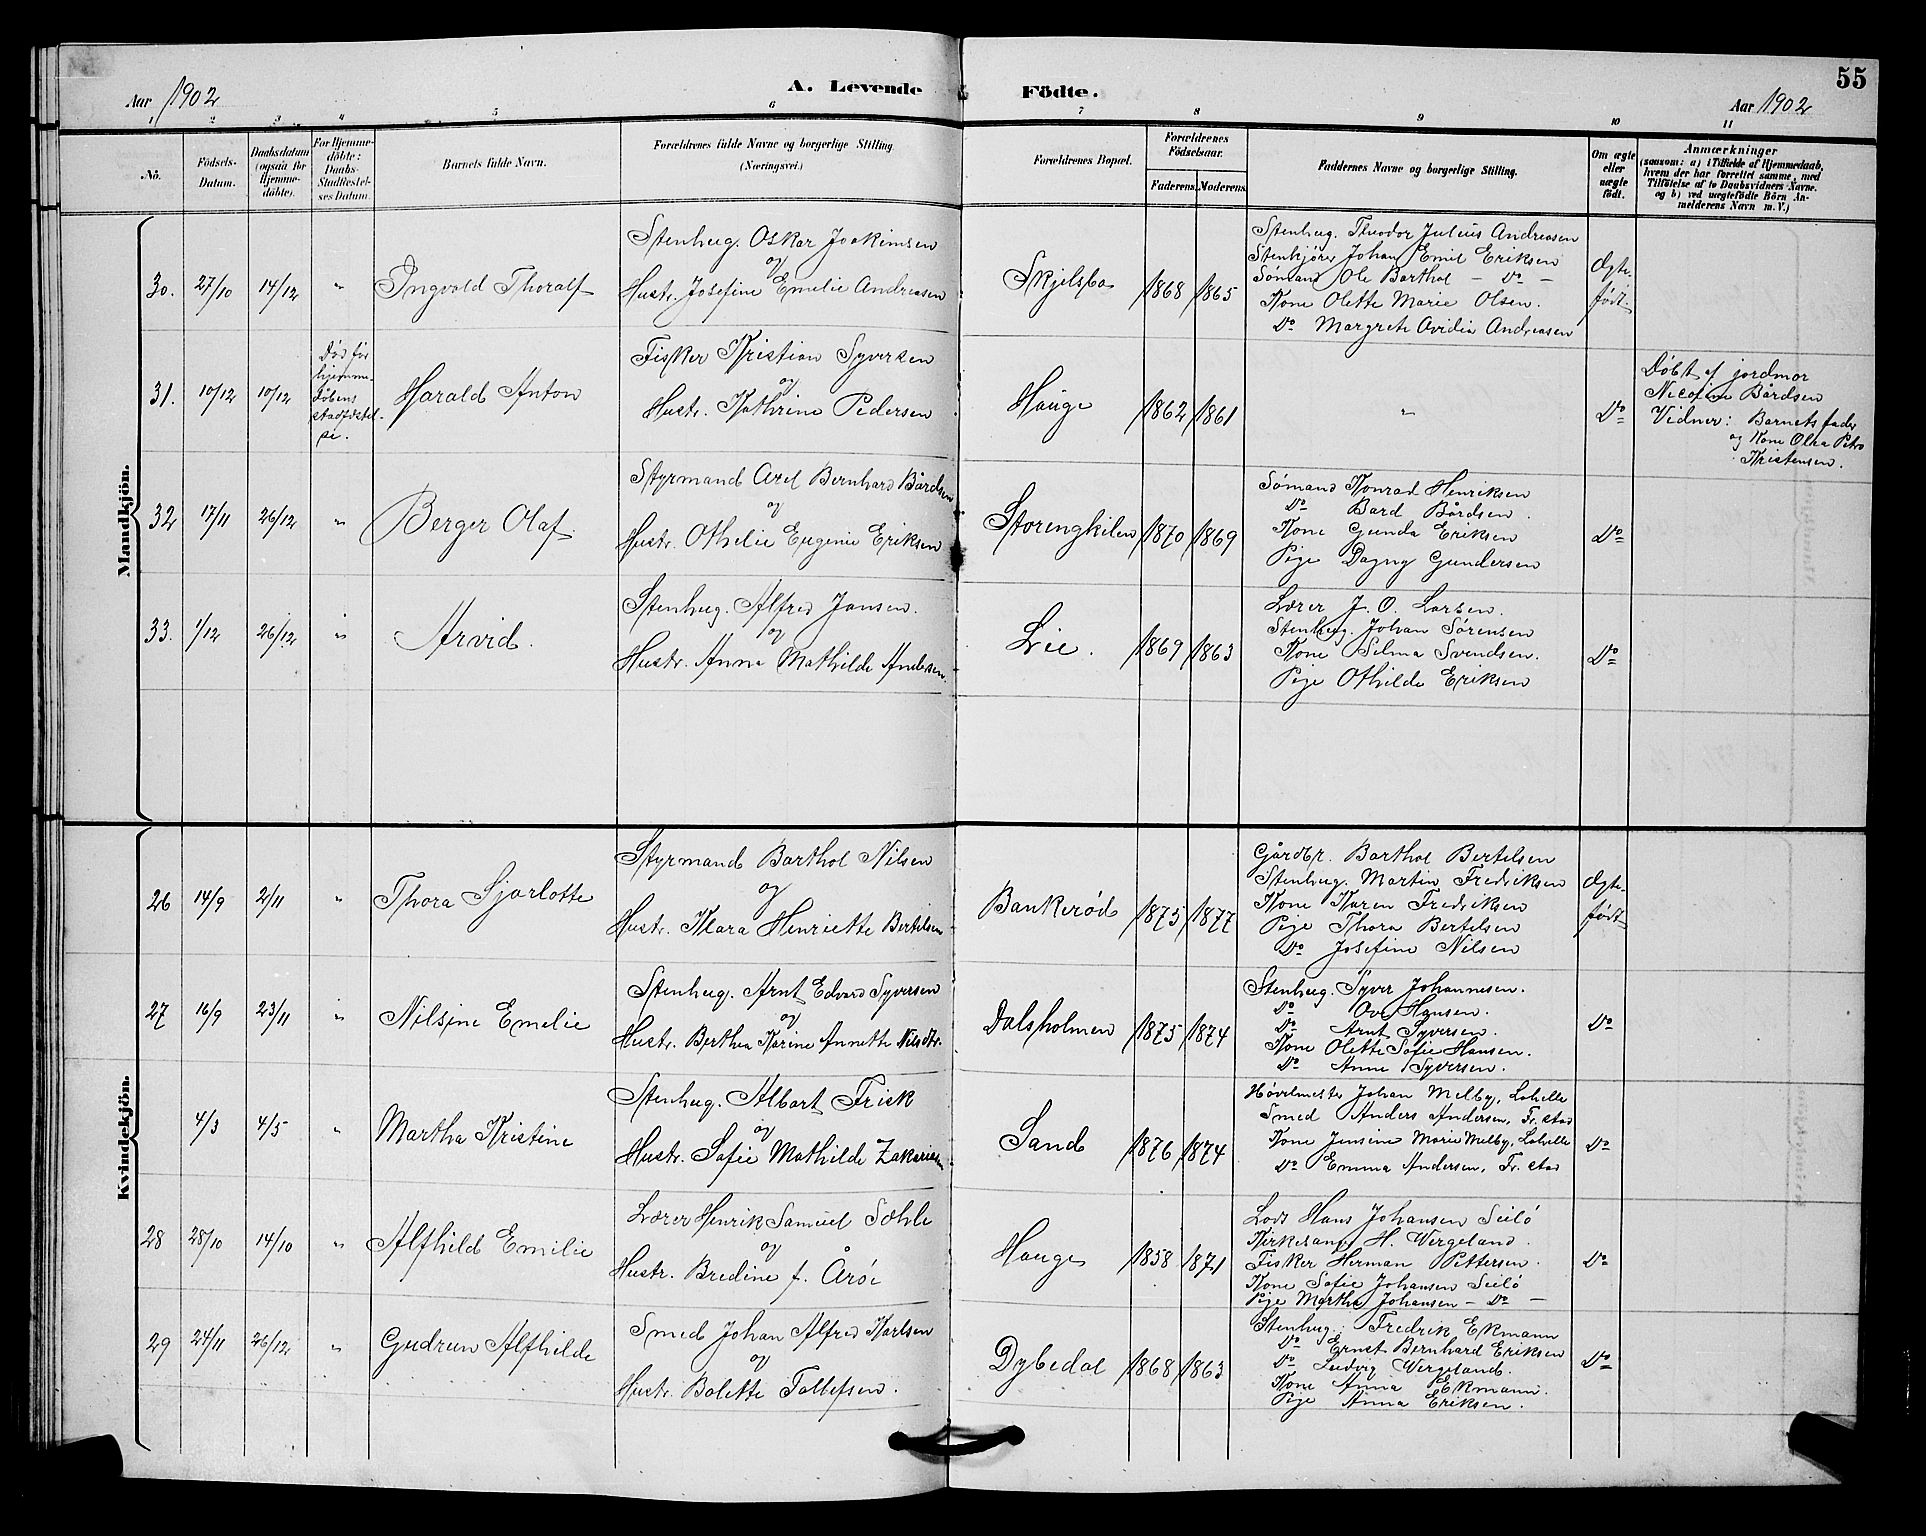 55
Aar 1902 A. Levende Födte. Aar 1902
1 2 3 4 5 6 7 8 9 10 11
No.
Födsels-Datum.
Daabsdatum (ogsaa for Hjemmedöbte).
For Hjemmedöbte: Daabs-Stadfæstelses Datum.
Barnets fulde Navn.
Forældrenes fulde Navne og borgerlige Stilling (Næringsvei.)
Forældrenes Bopæl.
Forældrenes Födselsaar.
Faderens. Moderens.
Faddernes Navne og borgerlige Stilling.
Om ægte eller uægte født.
Anmærkninger
(saasom: a) i Tilfælde af Hjemmedaab, hvem der har forrettet samme, med Tilföielse af to Daabsvidners Navne, og b) ved uægtefödte Börn Anmelderens Navn m. V.)
Mandkjön.
30. 27/10 14/12 " Ingvald Thoralf
Stenhug. Oskar Joakimsen
og
Hustr. Josefine Emelie Andreasen
Skjelsbo 1868 1865
Stenhug. Theodor Julius Andreasen
Stenkjører Johan Emil Eriksen
Sømand Ole Barthol — Do —
Kone Olette Marie Olsen.
Do Margrete Avidia Andreasen
Ægte født
31. 10/12 10/12
Død før
hjemme-
døbens
stadfæstel-
se.
Harald Anton
Fisker Kristian Syversen
og
Hustr. Kathrine Pedersen
Hauge 1862 1861 " Do
Døbt af jordmor
Nicoline Bårdsen
Vidner: Barnets fader
og Kone Olea Petra
Kristensen.
32 17/11 26/12 " Berger Olaf
Styrmand Axel Bernhard Bårdsen
og
Hustr. Othelie Eugenie Eriksen
Storengkilen 1870 1869
Sømand Konrad Henriksen
Do Bard Bårdsen.
Kone Gunda Eriksen
Pige Dagny Gundersen
Do
33. 1/12 26/12 " Arvid.
Stenhug. Alfred Jansen.
og
Hustr. Anna Mathilde Andersen.
Lie. 1869 1863
Lærer J. O. Larsen.
Stenhug. Johan Sørensen
Kone Selma Svendsen.
Pige Othilde Eriksen
Do
Kvindekjön.
26 14/9 2/11 " Thora Sjarlotte
Styrmand Barthol Nilsen
og
Hustr. Klara Henriette Bertelsen
Bankerød 1875 1877
Gårdbr. Barthol Bertelsen
Stenhug. Martin Fredriksen
Kone Karen Fredriksen
Pige Thora Bertelsen
Do Josefine Nilsen
Ægte født
27 16/9 23/11 " Nilsine Emelie
Stenhug. Arnt Edvard Syversen
og
Hustr. Berthea Karine Annette Nilsdtr.
Dalsholmen 1875 1874
Stenhug. Syver Johannesen.
Do Ove Hansen.
Do Arnt Syversen.
Kone Olette Sofie Hansen.
Do Anne Syversen.
Do
4/3 4/5 " Martha Kristine
Stenhug. Albart Frisk
og
Hustr. Sofie Mathilde Zakariasen
Sand 1876 1874
Høvelmester Johan Melby, Lahelle
Smed Anders Andersen, Fr.stad
Kone Jensine Marie Melby, Lahelle
Do Emma Andersen, Fr.stad
Do
28 28/10 14/10 " Alfhild Emilie
Lærer Henrik Samuel Sæhle
og
Hustr. Bredine f. Årøe
Hauge 1858 1871
Lods Hans Johansen Seilö
Kirkesang. H. Wergeland.
Fisker Herman Pettersen.
Kone Sofie Johansen Seilö
Pige Martha Johansen — Do —
Do
29 24/11 26/12 " Gudrun Alfhilde
Smed Johan Alfred Karlsen
og
Hustr. Bolette Tollefsen.
Dybedal 1868 1863
Stenhug. Fredrik Ekmann
Do Ernst Bernhard Eriksen
Do Ludvig Wergeland.
Kone Anna Ekmann.
Pige Anna Eriksen.
Do